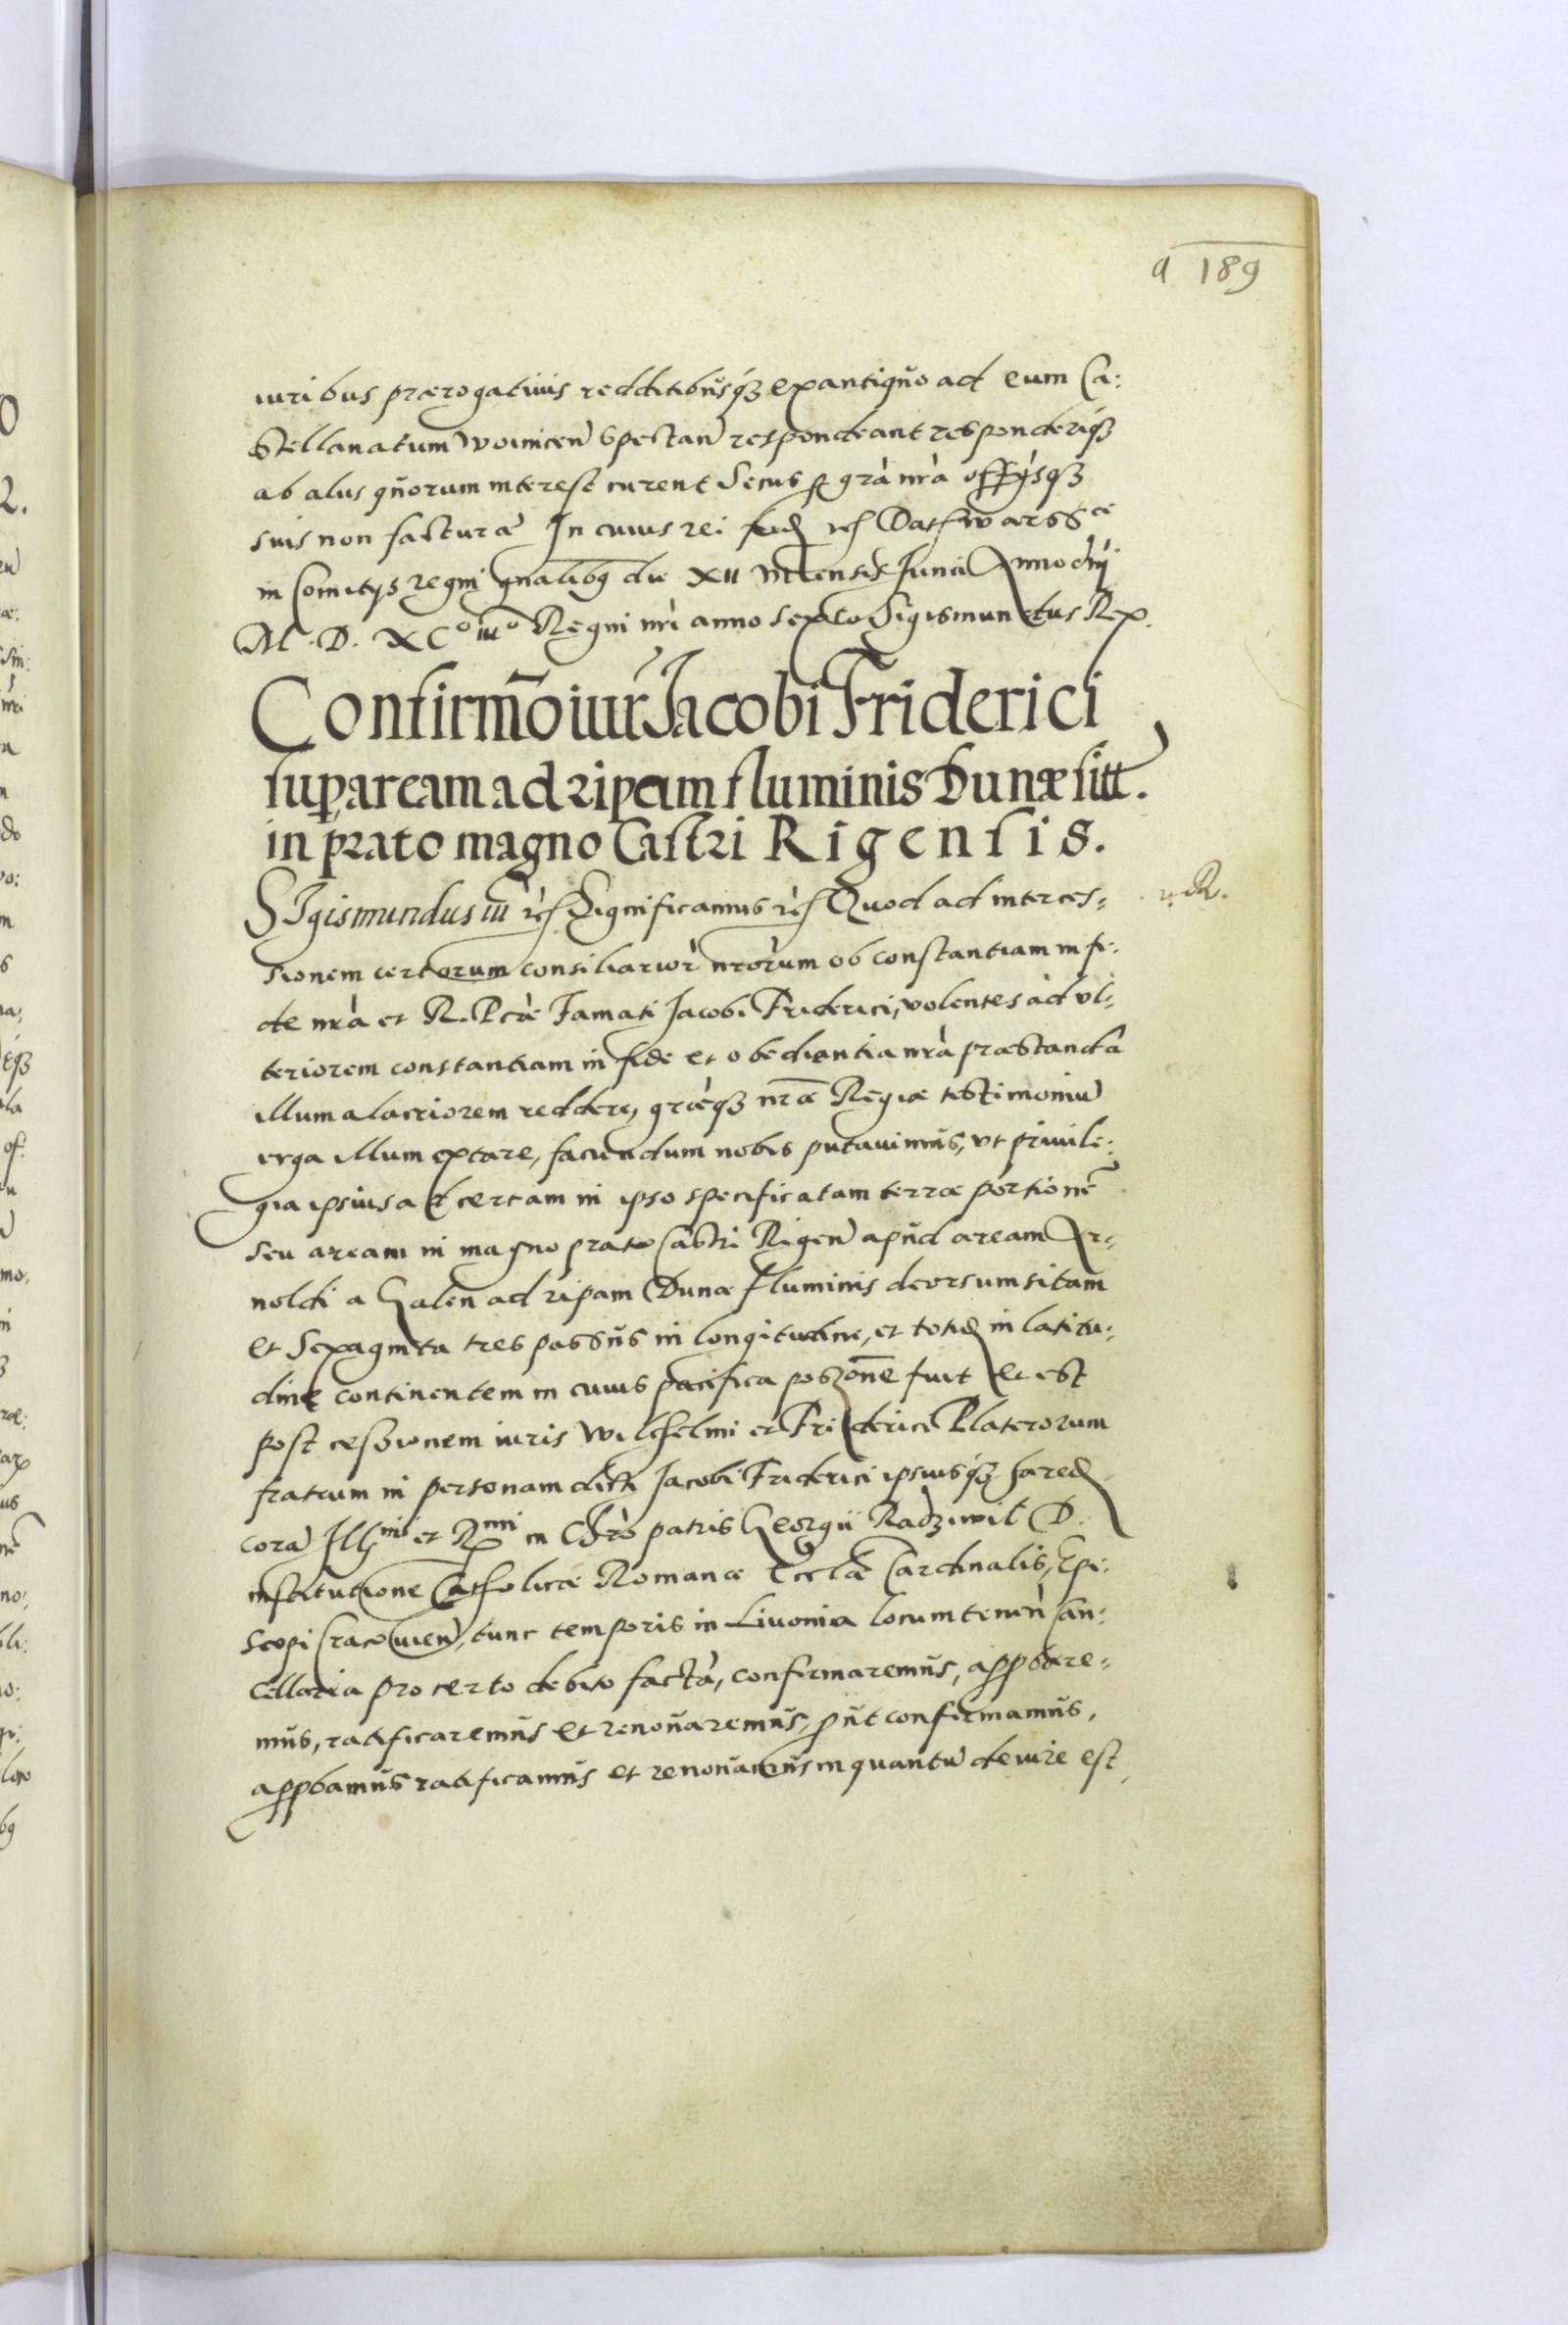 a 189
iuribus prærogativis redditibusq́ꝫ ex antiquo ad eum Ca:
stellanatum woinicen̄ spectan̄ respondeant responderiq́ꝫ
ab alus quorum interest curent Secus ꝓ grà nrà offysqꝫ
suis non facturæ In cuius rei fid rcʃ Dat warssæ
in Comitys regni gnalibꝫ die XII Mensis Junii Anno dnj
M. D. XC° iii° Regni nri anno sexto Sigismundus Rex.
Confirmõ iur̃ Jacobi Friderici
sup aream ad ripam fluminis Dunæ sitt.
in prato magno Castri Rigensis.
SIgismundus iii rcʃ Significamus rcʃ Quod ad interces:
sionem certorum consiliarior̀ nrorùm ob constantiam in fi:
de nrà et R. Pcæ Famati Jacobi Friderici, volentes ad vl:
teriorem constantiam in fide et obedientia nrà præstanda
illum alacriorem reddere, græqꝫ nræ Regiæ testimoniu
erga illum extare, faciendum nobis putavimus, vt privile:
gia ipsius ad certam in ipso specificatam terræ portionẽ
seu aream in magno prato Castri Rigen̄ apud aream Ar:
noldi a Halen ad ripam Dunæ fluminis deorsum sitam
et Sexaginta tres passus in longitudine, et totid in latitu:
dine continentem in cuius pacifica poszone fuit et est
post cessionem iuris Wilhelmi et Friderici Platerorum
fratrum in personam dicti Jacobi Friderici ipsiusq́ꝫ hæred
corà Illmi et Rmi in Chrò patris Georgii Radziwil D.
institutione Catholicæ Romanæ Ecclæ Cardinalis, Epi:
scopi Cracovien̄, tunc temporis in Livonia locum tenen̄ Can:
cellaria pro certo debito factà, confirmaremus, appbare:
mus, ratificaremus et renovaremus, put confirmamus,
appbamus ratificamus et renovamus in quantu de iure est
R.